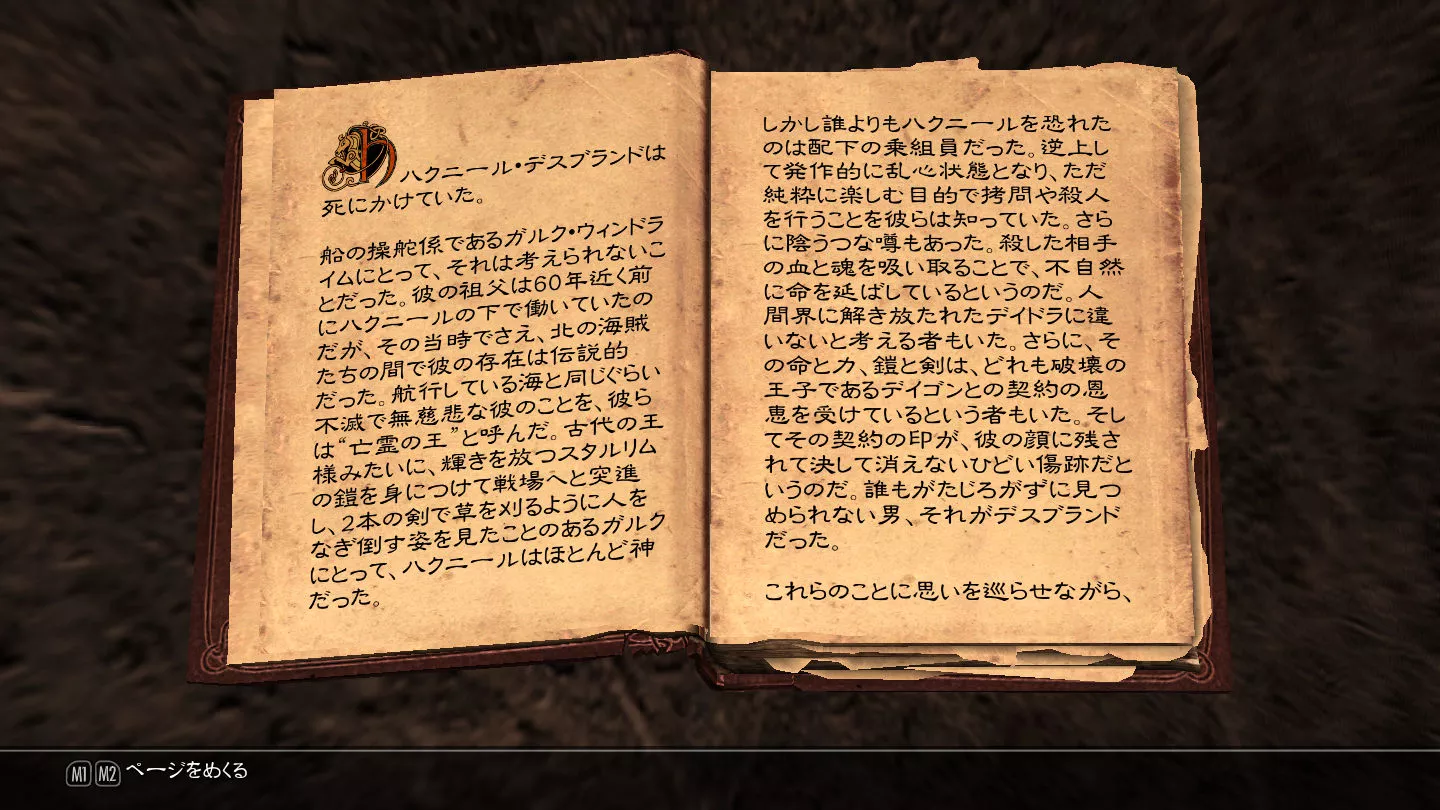 H
ハクニール・デスブランドは
死にかけていた。
船の操舵係であるガルク・ウィンドラ
イムにとって、それは考えられないこ
とだった。彼の祖父は60年近く前
にハクニールの下で働いていたの
だが、その当時でさえ、北の海賊
たちの間で彼の存在は伝説的
だった。航行している海と同じぐらい
不滅で無慈悲な彼のことを、彼ら
は“亡霊の王”と呼んだ。古代の王
様みたいに、輝きを放つスタルリム
の鎧を身につけて戦場へと突進
し、2本の剣で草を刈るように人を
なぎ倒す姿を見たことのあるガルク
にとって、ハクニールはほとんど神
だった。
しかし誰よりもハクニールを恐れた
のは配下の乗組員だった。逆上し
て発作的に乱心状態となり、ただ
純粋に楽しむ目的で拷問や殺人
を行うことを彼らは知っていた。さら
に陰うつな噂もあった。殺した相手
の血と魂を吸い取ることで、不自然
に命を延ばしているというのだ。人
間界に解き放たれたデイドラに違
いないと考える者もいた。さらに、そ
の命と力、鎧と剣は、どれも破壊の
王子であるデイゴンとの契約の恩
恵を受けているという者もいた。そし
てその契約の印が、彼の顔に残さ
れて決して消えないひどい傷跡だと
いうのだ。誰もがたじろがずに見つ
められない男、それがデスブランド
だった。
これらのことに思いを巡らせながら、
M1 M2 ページをめくる